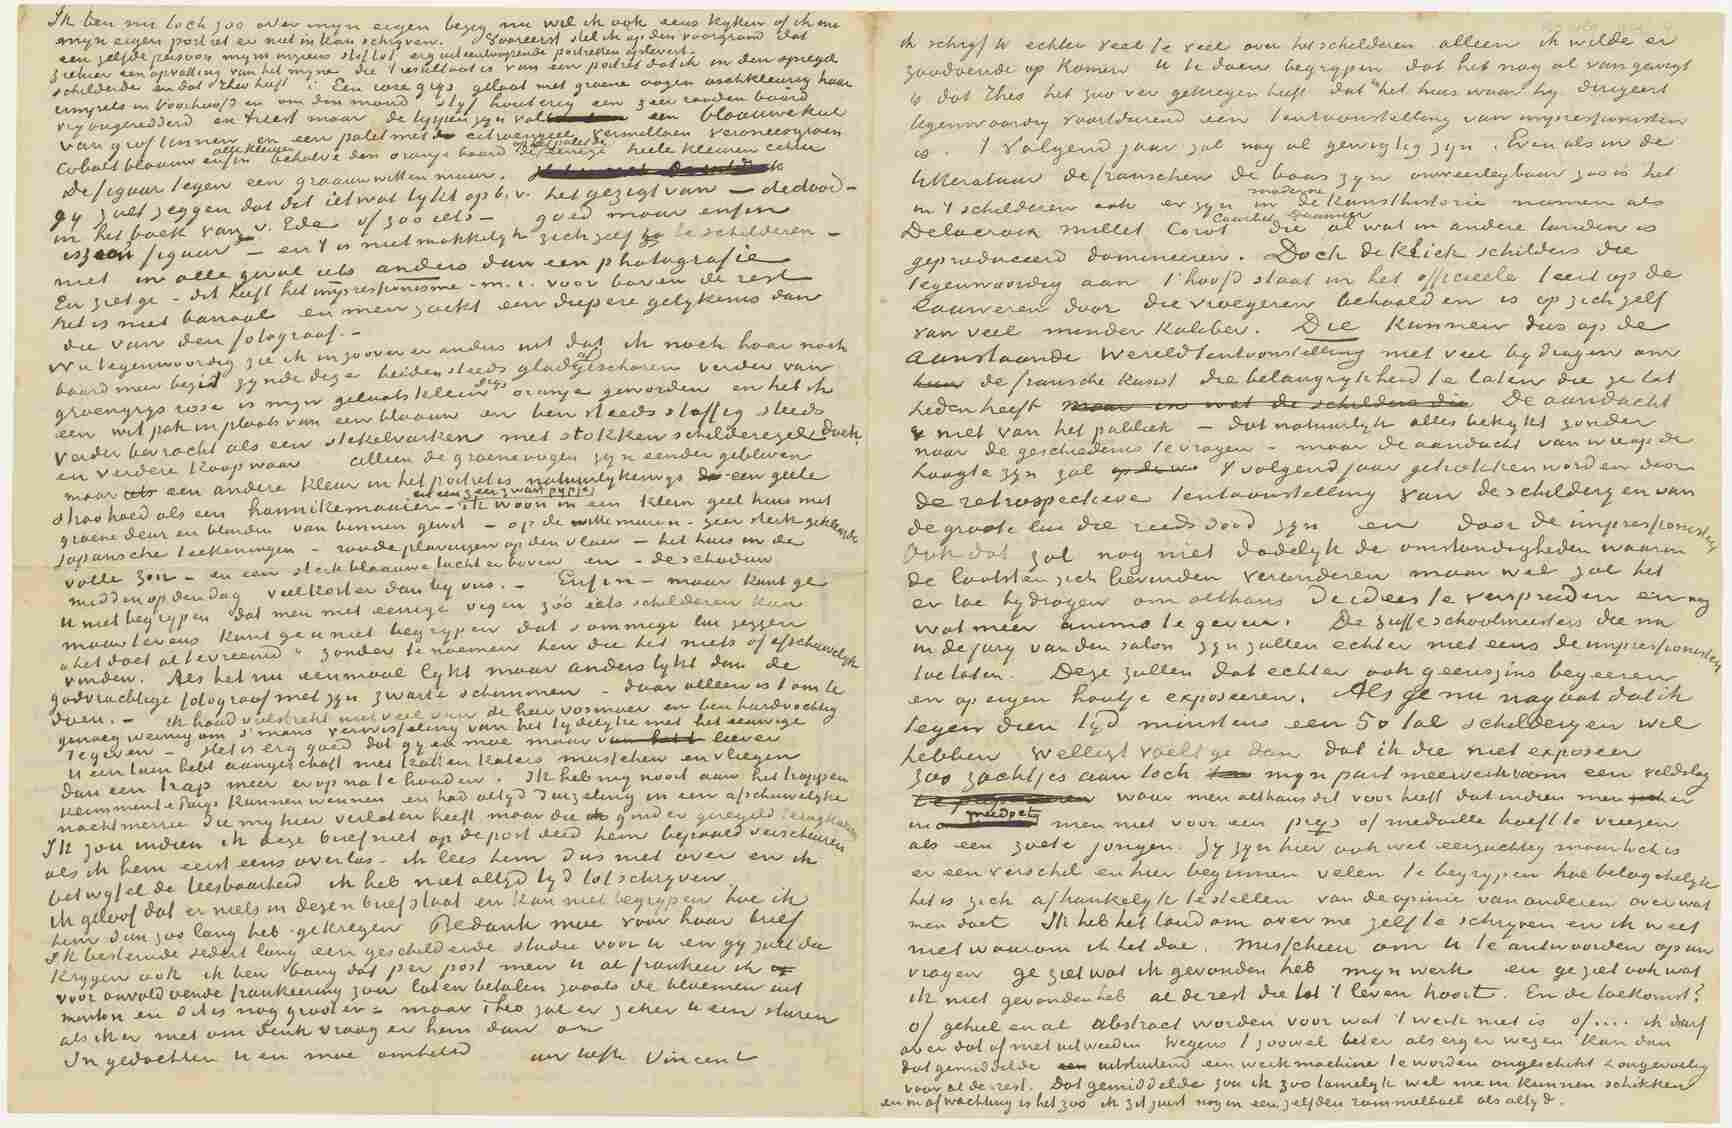 Ik ben nu toch zoo over mijn eigen bezig nu wil ik ook eens kijken of ik me
mijn eigen portret er niet in kan schrijven. Vooreerst stel ik op den voorgrond dat
een zelfde persoon mijns inziens stof tot erg uiteenloopende portretten oplevert.
Ziehier een opvatting van het mijne die 't resultaat is van een portret dat ik in den spiegel
schilderde en dat Theo heeft: Een rose grijs gelaat met groene oogen aschkleurig haar
rimpels in voorhoofd en om den mond stijf houterig een zeer rooden baard
vrij ongeredderd en triest maar de lippen zijn vol een blaauwe kiel
van grof linnen en een palet met citroengeel vermilloen veroneesgroen
cobaltblaauw enfin alle kleuren behalve den oranje baard op het palet de eenige heele kleuren echter
De figuur tegen een graauwwitten muur.
Gij zult zeggen dat dit ietwat lijkt op b.v. het gezigt van – de dood –
in het boek van v. Eeden of zoo iets – goed maar enfin
is zoo'n figuur – en 't is niet makkelijk zichzelf te schilderen –
niet in alle geval iets anders dan een photografie
En ziet ge – dit heeft het impressionisme – m.i. voor boven de rest
het is niet banaal en men zoekt een diepere gelijkenis dan
die van den fotograaf. –
Nu tegenwoordig zie ik in zoover er anders uit dat ik noch haar noch
baard meer bezit zijnde deze beiden steeds glad afgeschoren verder van
groengrijs rose is mijn gelaatskleur grijs oranje geworden en heb ik
een wit pak in plaats van een blaauw en ben steeds stoffig steeds
verder bevracht als een stekelvarken met stokken schilderezel doek
en verdere koopwaar Alleen de groene oogen zijn eender gebleven
maar een andere kleur in het portret is natuurlijkerwijs een gele
stroohoed als een hannikemaaier – en een zeer zwart pijpje – ik woon in een klein geel huis met
groene deur en blinden van binnen gewit – op de witte muren – zeer sterk gekleurde
Japansche teekeningen – roode plavuizen op den vloer – het huis in de
volle zon – en een sterk blaauwe lucht er boven en – de schaduw
midden op den dag veel korter dan bij ons. – Enfin – maar kunt ge
U niet begrijpen dat men met eenige vegen zóó iets schilderen kan
maar tevens kunt ge U niet begrijpen dat sommige lui zeggen
"het doet al te vreemd" zonder te noemen hen die het niets of afschuwelijk
vinden. Als het nu eenmaal lijkt maar anders lijkt dan de
godvruchtige fotograaf met zijn zwarte schimmen – daar alleen is 't om te
doen. – Ik houd volstrekt niet veel van de heer Vosmaer en ben hardvochtig
genoeg weinig om s'mans verwisseling van het tijdelijke met het eeuwige
te geven – Het is erg goed dat gij en moe maar liever
U een tuin hebt aangeschaft met katten katers musschen en vliegen
dan een trap meer er op na te houden. Ik heb mij nooit aan het trappen
klimmen te Parijs kunnen wennen en had altijd duizeling in een afschuwelijke
nachtmerrie die mij hier verlaten heeft maar die ginder geregeld terugkwam
Ik zou indien ik deze brief niet op de post deed hem bepaald verscheuren
als ik hem eerst eens overlas – ik lees hem dus niet over en ik
betwijfel de leesbaarheid ik heb niet altijd tijd tot schrijven.
Ik geloof dat er niets in dezen brief staat en kan niet begrijpen hoe ik
hem dan zoo lang heb gekregen Bedank moe voor haar brief
Ik bestemde sedert lang een geschilderde studie voor U en gij zult die
krijgen ook ik ben bang dat per post men U al frankeer ik
voor onvoldoende frankeering zou laten betalen zooals de bloemen uit
Menton en dit is nog grooter – maar Theo zal er zeker U een sturen
als ik er niet om denk vraag er hem dan om
In gedachten U en moe omhelsd uw liefh Vincent
Ik schrijf U echter veel te veel over het schilderen alleen ik wilde er
zoodoende op komen U te doen begrijpen dat het nog al van gewigt
is dat Theo het zoo ver gekregen heeft dat in het huis waar hij dirigeert
tegenwoordig voortdurend een tentoonstelling van impressionisten
is. 't Volgend jaar zal nog al gewigtig zijn. Even als in de
litteratuur de franschen de baas zijn onweerlegbaar zoo is het
in 't schilderen ook er zijn in de moderne kunsthistorie namen als
Delacroix Millet Corot Courbet Daumier die al wat in andere landen is
geproduceerd domineeren. Doch de kliek schilders die
tegenwoordig aan 't hoofd staat in het officieele teert op de
lauweren door die vroegeren behaald en is op zich zelf
van veel minder kaliber. Die kunnen dus op de
aanstaande Wereldtentoonstelling niet veel bijdragen om
de fransche kunst die belangrijkheid te laten die ze tot
heden heeft maar in wat de schilders die De aandacht
niet van het publiek – dat natuurlijk alles bekijkt zonder
naar de geschiedenis te vragen – maar de aandacht van wie op de
hoogte zijn zal 't volgend jaar getrokken worden door
de retrospectieve tentoonstelling van de schilderijen van
de groote lui die reeds dood zijn en door de impressionisten
Ook dat zal nog niet dadelijk de omstandigheden waarin
de laatsten zich bevinden veranderen maar wel zal het
er toe bijdragen om althans de idees te verspreiden en nog
wat meer animo te geven. De suffe schoolmeesters die nu
in de jury van den salon zijn zullen echter niet eens de impressionisten
toelaten. Deze zullen dat echter ook geenszins begeeren
en op eigen houtje exposeeren. Als ge nu nagaat dat ik
tegen dien tijd minstens een 50 tal schilderijen wil
hebben welligt voelt ge dan dat ik die niet exposeer
zoo zachtjes aan toch mijn part meewerk voor een veldslag
waar men althans dit voor heeft dat indien men er
in meedoet men niet voor een prijs of medaille hoeft te vreezen
als een zoete jongen. Zij zijn hier ook wel eerzuchtig maar het is
er een verschil en hier beginnen velen te begrijpen hoe belagchelijk
het is zich afhankelijk te stellen van de opinie van anderen over wat
men doet Ik heb het land om over me zelf te schrijven en ik weet
niet waarom ik het doe. Misschien om U te antwoorden op uw
vragen ge ziet wat ik gevonden heb mijn werk en ge ziet ook wat
ik niet gevonden heb al de rest die tot 't leven hoort. En de toekomst?
of geheel en al abstract worden voor wat 't werk niet is of .... ik durf
over dat of niet uitweiden wegens 't zoowel beter als erger wezen kan dan
dat gemiddelde uitsluitend een werkmachine te worden ongeschikt & ongevoelig
voor al de rest. Dat gemiddelde zou ik zoo tamelijk wel me in kunnen schikken
en in afwachting is het zoo ik zit juist nog in een zelfden rommelboel als altijd.